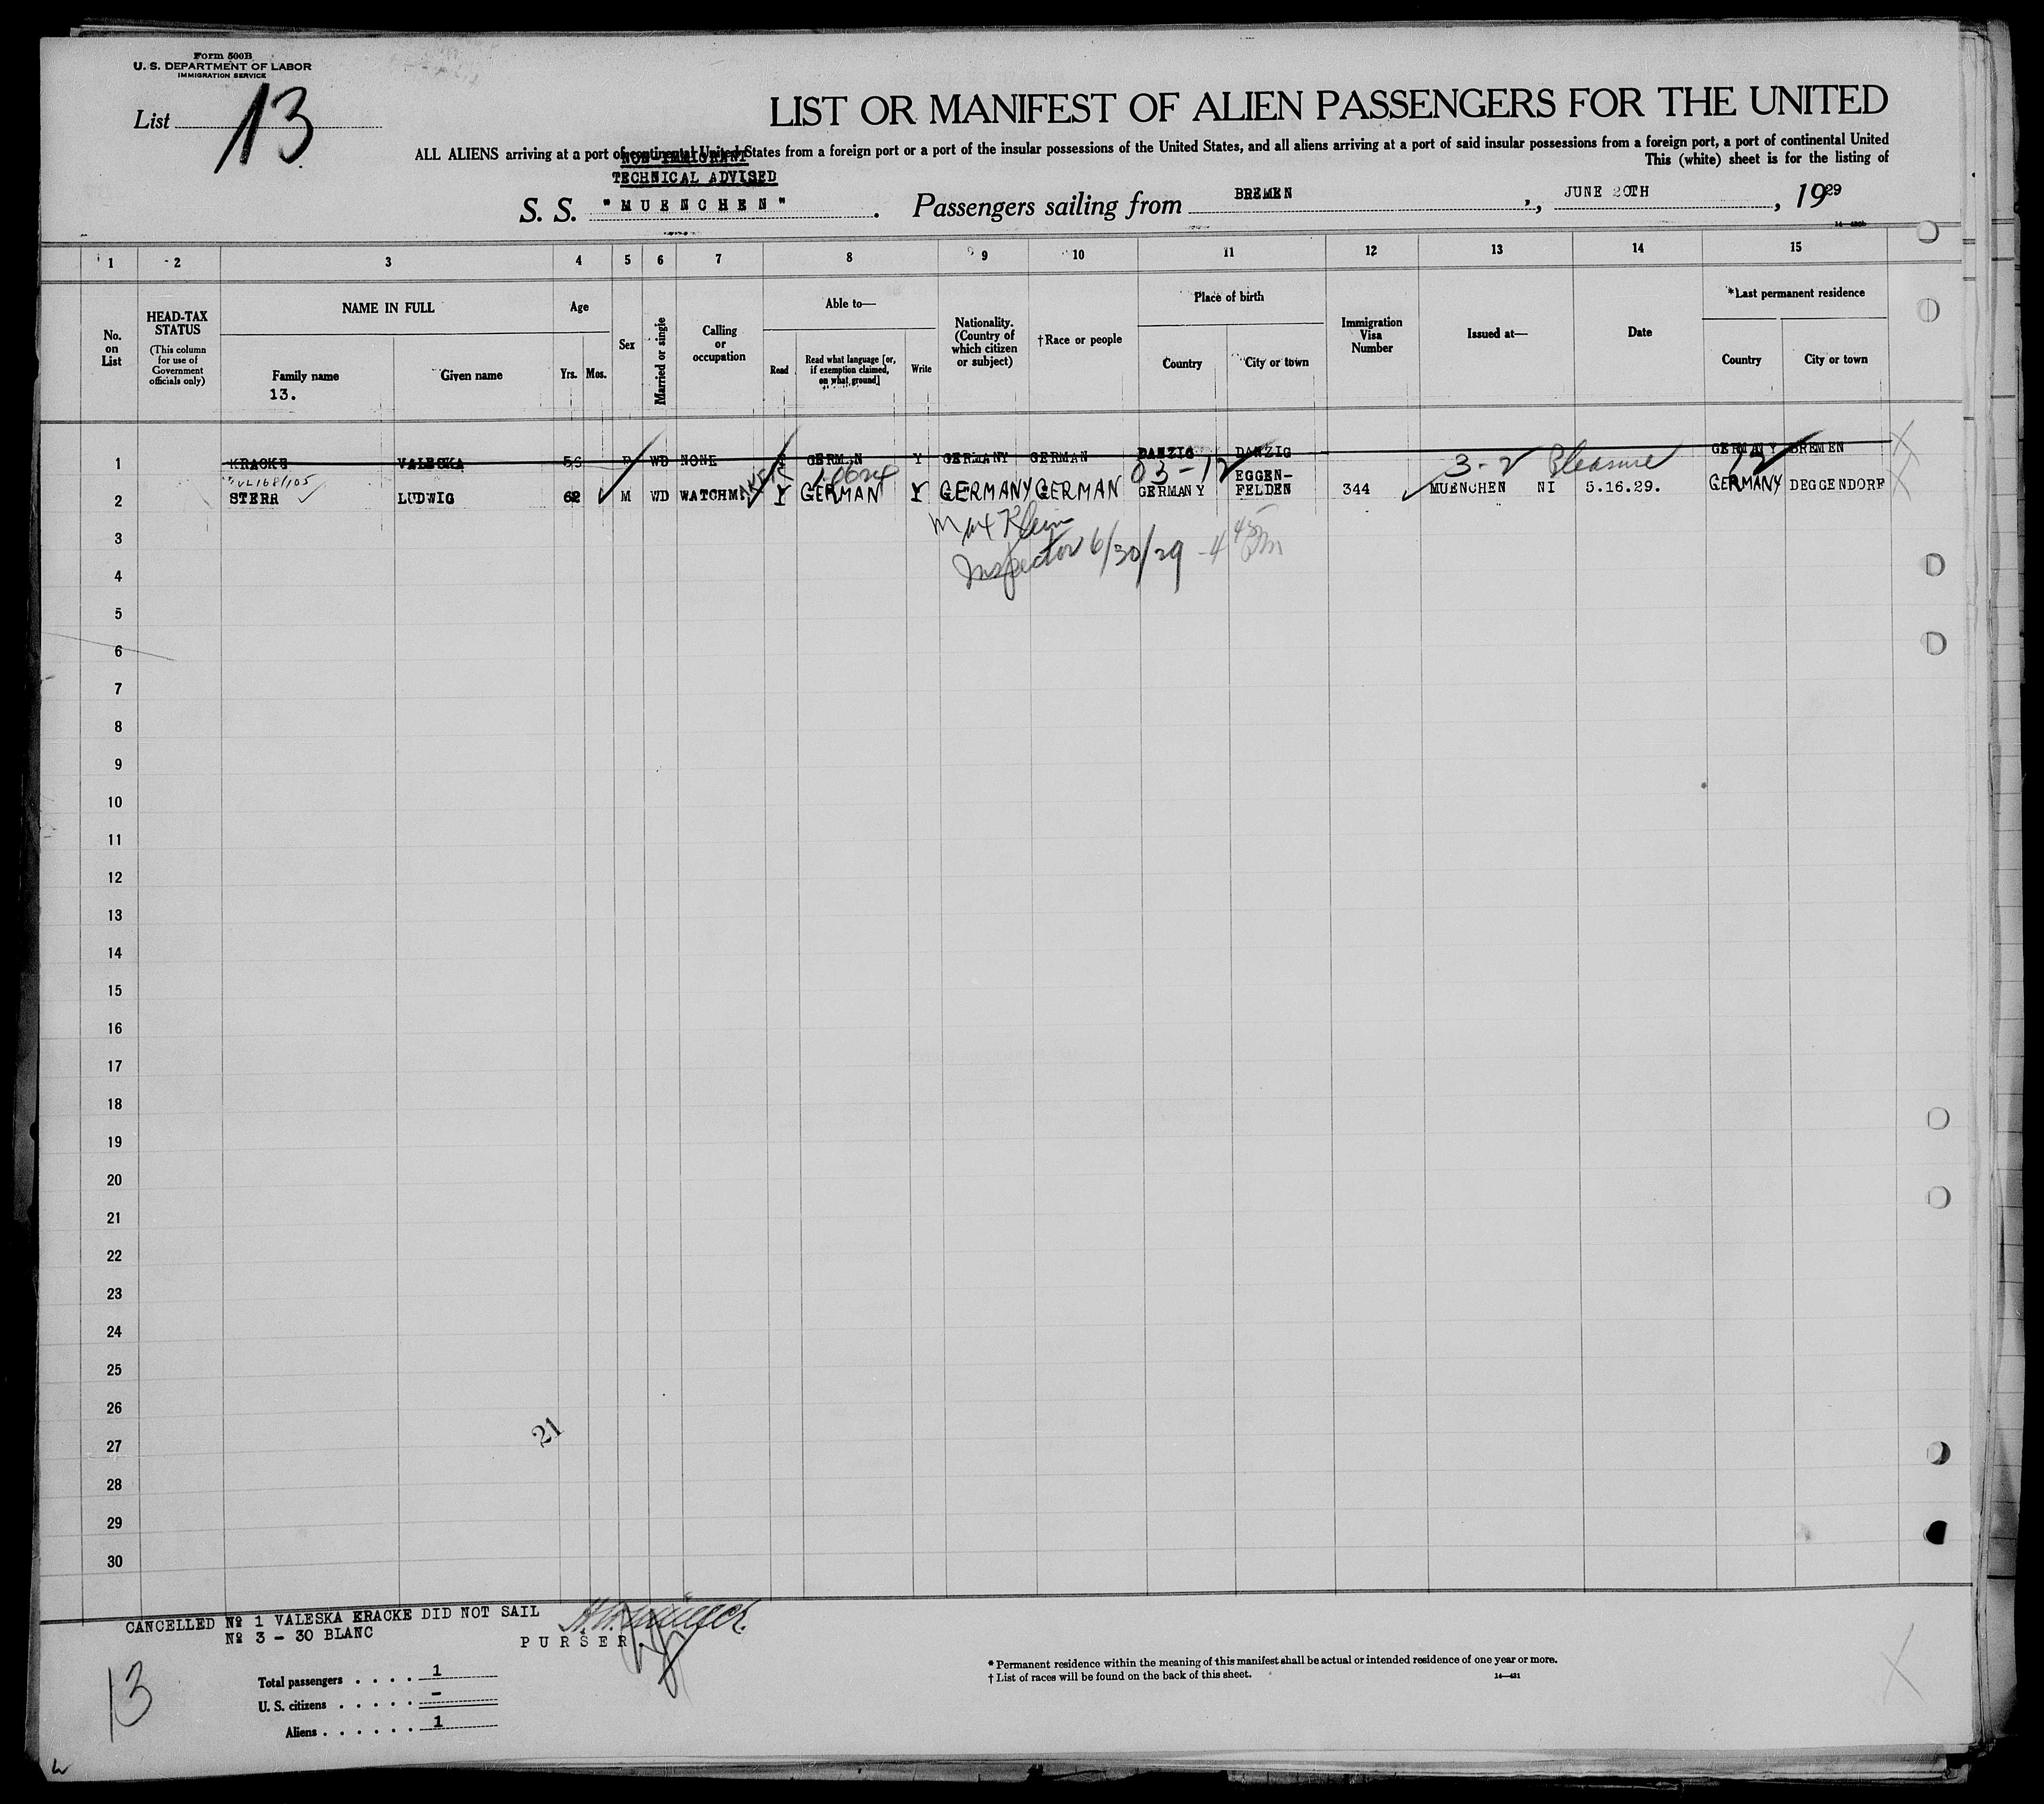 Form 500B
U. S. DEPARTMENT OF LABOR
IMMIGRATION SERVICE
List 13
LIST OR MANIFEST OF ALIEN PASSENGERS FOR THE UNITED
ALL ALIENS arriving at a port of continental United States from a foreign port or a port of the insular possessions of the United States, and all aliens arriving at a port of said insular possessions from a foreign port, a port of continental United
NON-IMMIGRANT
This (white) sheet is for the listing of
TECHNICAL ADVISED
S. S. "MUENCHEN". Passengers sailing from BREMEN, JUNE 20TH, 1929
1 2 3 4 5 6 7 8 9 10 11 12 13 14 15
No. on List
HEAD-TAX STATUS
(This column for use of Government officials only)
NAME IN FULL
Family name
13.
Given name
Age
Yrs. Mos.
Sex
Married or single
Calling or occupation
Able to—
Read
Read what language [or, if exemption claimed, on what ground]
Write
Nationality. (Country of which citizen or subject)
†Race or people
Place of birth
Country
City or town
Immigration Visa Number
Issued at—
Date
*Last permanent residence
Country
City or town
1 KRACKE VALESKA 56 F WD NONE Y GERMAN Y GERMANY GERMAN DANZIG DANZIG GERMANY BREMEN
03-12 3-2 Pleasure 12
2 STERR LUDWIG 62 M WD WATCHM Y GERMAN Y GERMANY GERMAN GERMANY EGGEN-FELDEN 344 MUENCHEN NI 5.16.29. GERMANY DEGGENDORF
Max Klein
3
Inspector 6/30/29 - 4 45 pm
4
5
6
7
8
9
10
11
12
13
14
15
16
17
18
19
20
21
22
23
24
25
26
27
21
28
29
30
CANCELLED № 1 VALESKA KRACKE DID NOT SAIL
№ 3 - 30 BLANC
PURSER
13
Total passengers . . . . 1
U. S. citizens . . . . . –
Aliens . . . . . . 1
* Permanent residence within the meaning of this manifest shall be actual or intended residence of one year or more.
† List of races will be found on the back of this sheet.
14—431